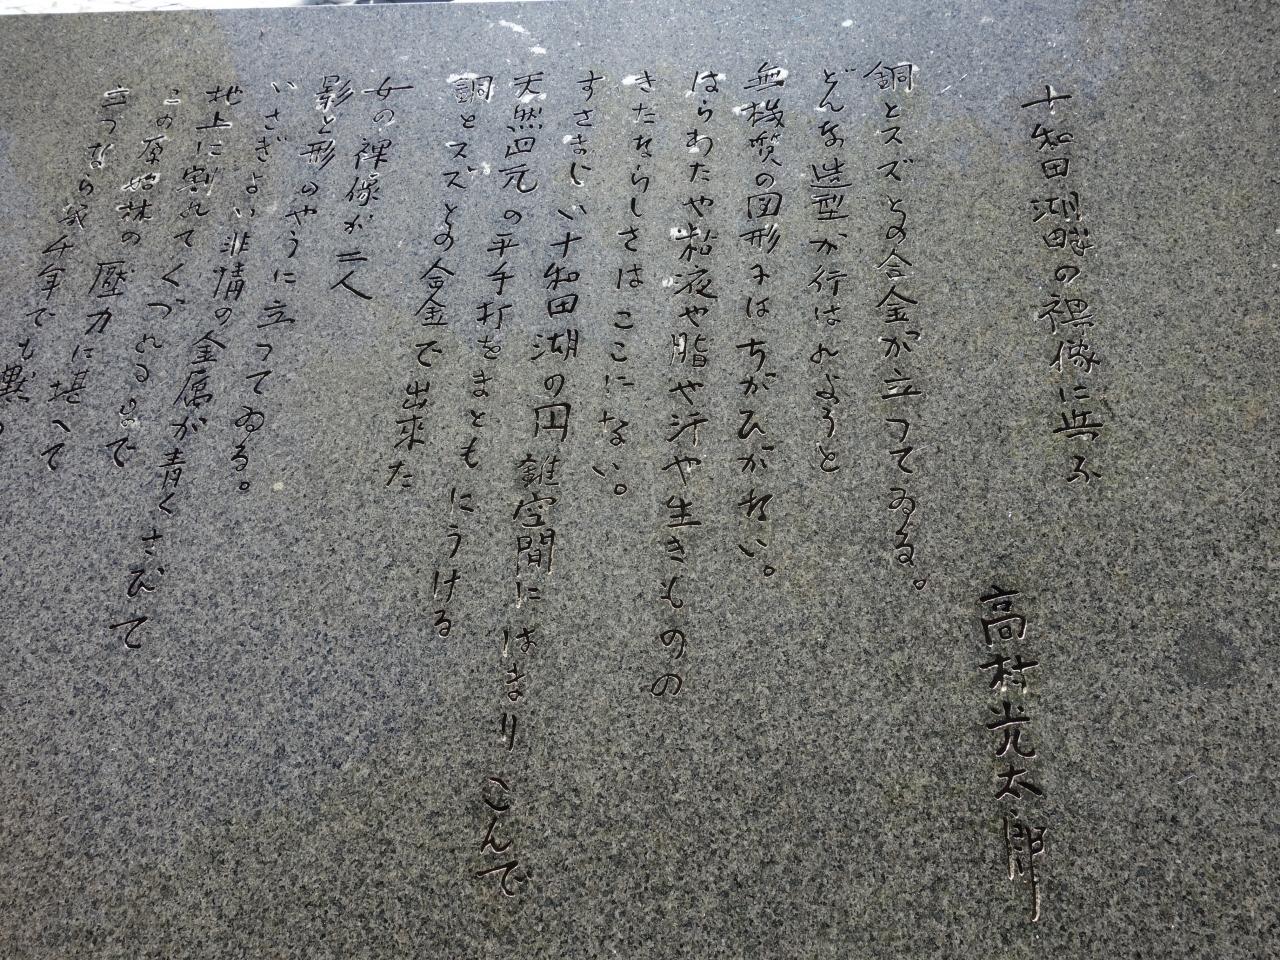 十和田湖畔の裸像に与ふ
高村光太郎
銅とスズとの合金が立つてゐる。
どんな造型が行はれようと
無機質の図形にはちがひがない。
はらわたや粘液や脂や汗や生きものの
きたならしさはここにない。
すさまじい十和田湖の円錐空間にはまりこんで
天然四元の平手打をまともにうける
銅とスズとの合金で出来た
女の裸像が二人
影と形のやうに立つてゐる。
いさぎよい非情の金属が青くさびて
地上に割れてくづれるまで
この原始林の圧力に堪へて
立つなら幾千年でも黙つ